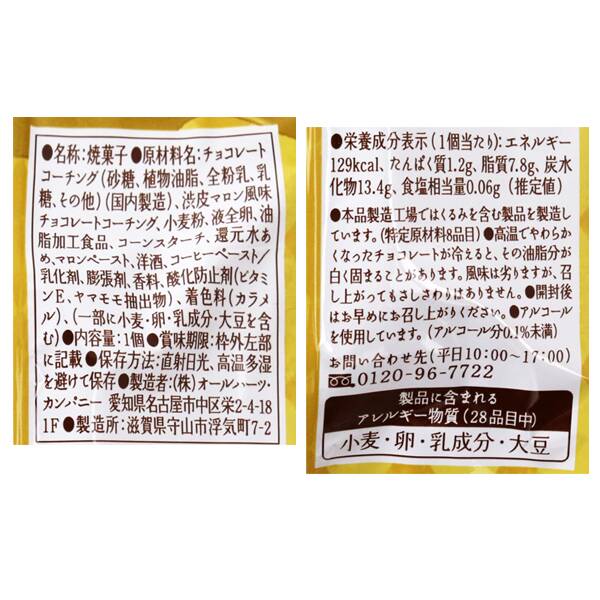 ●名称:焼菓子●原材料名:チョコレート
コーチング(砂糖、植物油脂、全粉乳、乳
糖、その他)(国内製造)、渋皮マロン風味
チョコレートコーチング、小麦粉、液全卵、油
脂加工食品、コーンスターチ、還元水あ
め、マロンペースト、洋酒、コーヒーペースト/
乳化剤、膨張剤、香料、酸化防止剤(ビタミ
ンE、ヤマモモ抽出物)、着色料(カラメ
ル)、(一部に小麦・卵・乳成分・大豆を含
む)●内容量:1個●賞味期限:枠外左部
に記載●保存方法:直射日光、高温多湿
を避けて保存●製造者:(株)オールハーツ・
カンパニー 愛知県名古屋市中区栄2-4-18
1F●製造所:滋賀県守山市浮気町7-2
●栄養成分表示(1個当たり):エネルギー
129kcal、たんぱく質1.2g、脂質7.8g、炭水
化物13.4g、食塩相当量0.06g(推定値)
●本品製造工場ではくるみを含む製品を製造し
ています。(特定原材料8品目)●高温でやわらか
くなったチョコレートが冷えると、その油脂分が
白く固まることがあります。風味は劣りますが、召
し上がってもさしさわりはありません。●開封後
はお早めにお召し上がりください。●アルコール
を使用しています。(アルコール分0.1%未満)
お問い合わせ先(平日10:00~17:00)
0120-96-7722
製品に含まれる
アレルギー物質(28品目中)
小麦・卵・乳成分・大豆